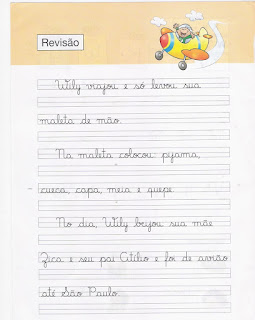 Revisão
Wily viajou e só levou sua
maleta de mão.
Na maleta colocou: pijama,
cueca, capa, meia e quepe.
No dia, Wily beijou sua mãe
Zica e seu pai Citilio e foi de avião
até São Paulo.